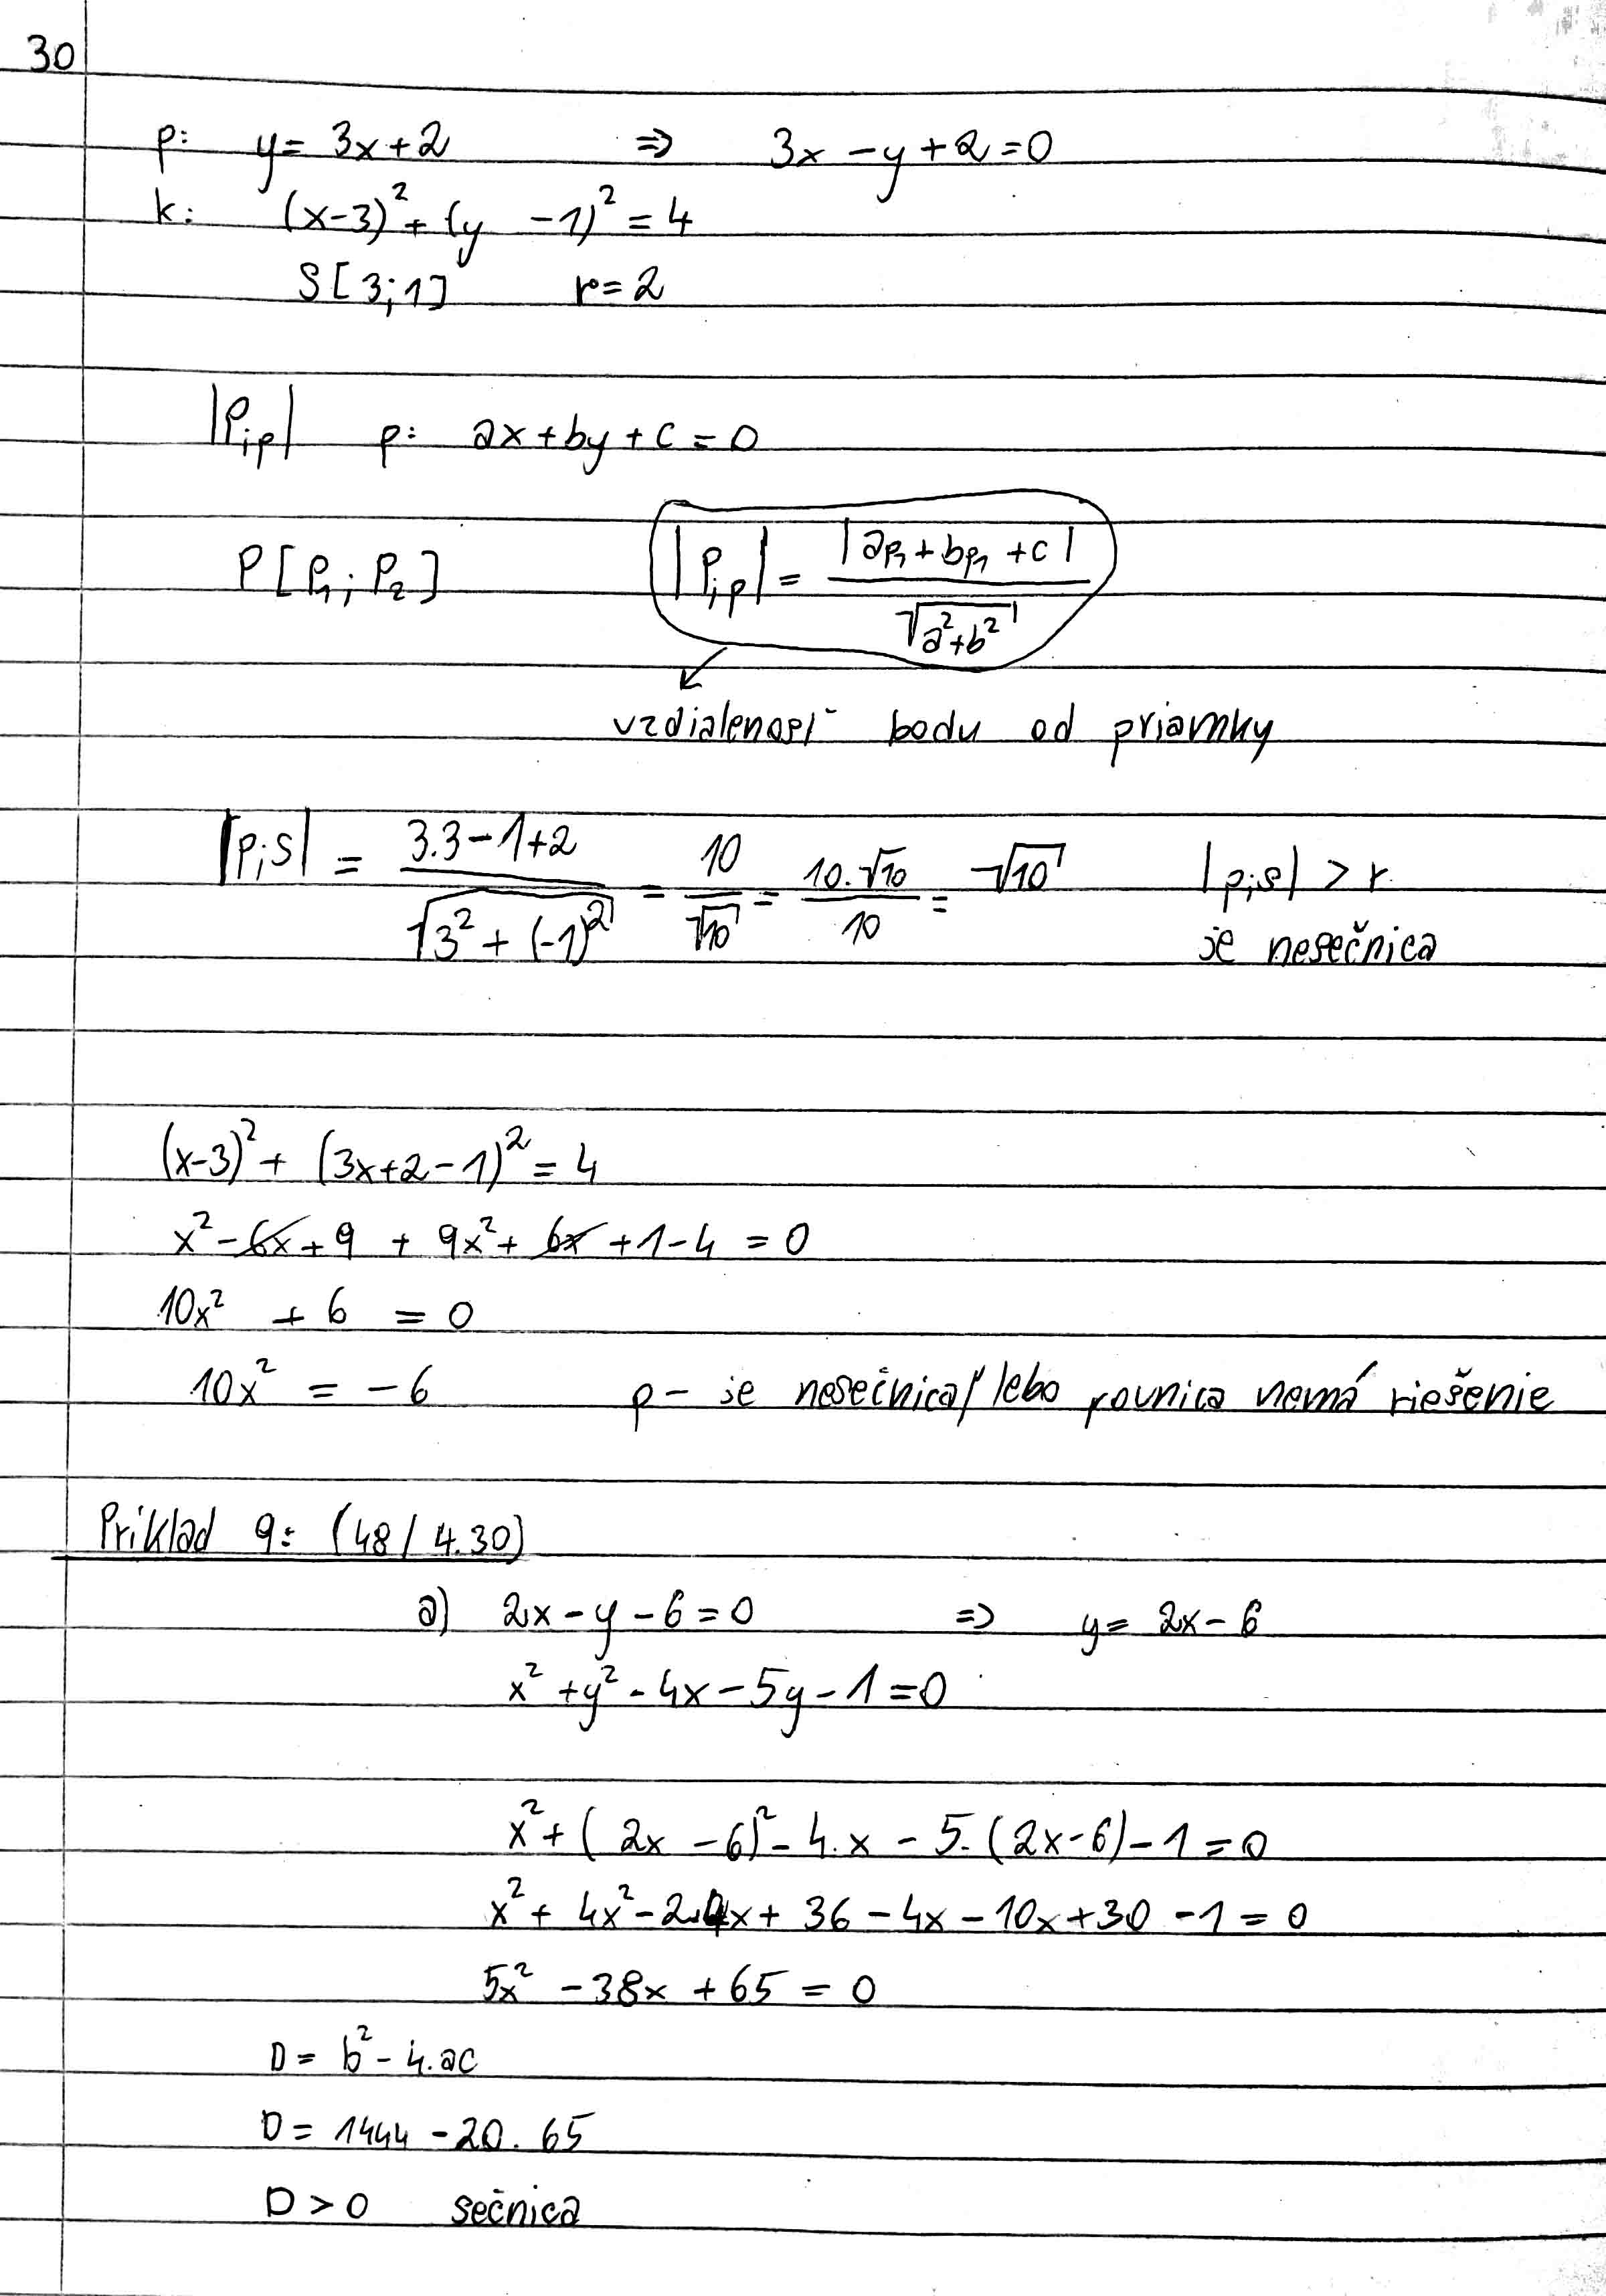 30
p: y = 3x+2 ⇒ 3x - y + 2 = 0
k: (x-3)² + (y -1)² = 4
S[3;1] r = 2
|P;p| p: ax+by+c = 0
P[p₁; p₂] |P;p| = |ap₁+bp₁+c| / √(a²+b²)
vzdialenosť bodu od priamky
|p;S| = (3.3-1+2) / √(3²+(-1)²) = 10/√10 = 10.√10/10 = √10 |p;s| > r
je nesečnica
(x-3)² + (3x+2-1)² = 4
x² - 6x + 9 + 9x² + 6x + 1 - 4 = 0
10x² + 6 = 0
10x² = -6 p - je nesečnica, lebo rovnica nemá riešenie
Príklad 9: (48/4.30)
a) 2x - y - 6 = 0 ⇒ y = 2x - 6
x² + y² - 4x - 5y - 1 = 0
x² + (2x - 6)² - 4.x - 5.(2x-6) - 1 = 0
x² + 4x² - 24x + 36 - 4x - 10x + 30 - 1 = 0
5x² - 38x + 65 = 0
D = b² - 4.ac
D = 1444 - 20.65
D > 0 sečnica